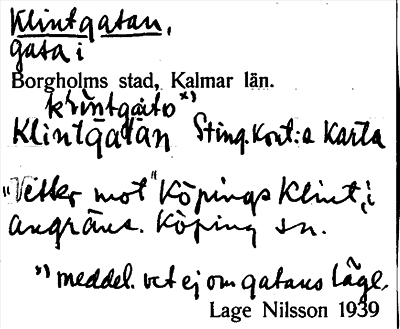 Klintgatan,
gata i
Borgholms stad, Kalmar län.
klintgàto x)
Klintgatan Sting. Kont:s Karta
"Vetter mot" Köpings Klint, i
angräns. Köping sn.
x) meddel. vet ej om gatans läge.
Lage Nilsson 1939